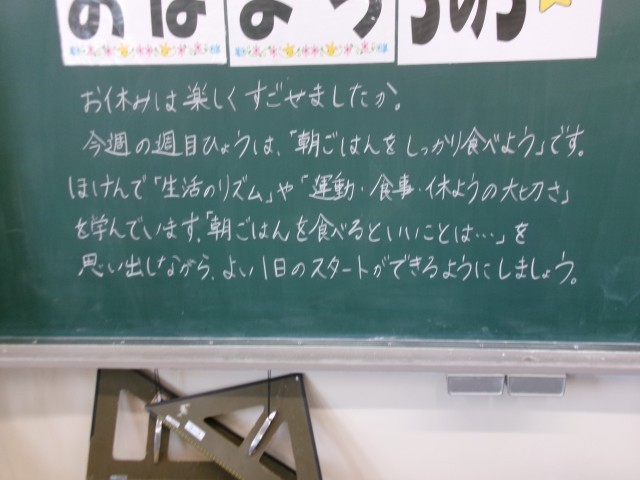 おはよう
お休みは楽しくすごせましたか。
今週の週目ひょうは、「朝ごはんをしっかり食べよう」です。
ほけんで「生活のリズム」や「運動・食事・休ようの大切さ」
を学んでいます。「朝ごはんを食べるといいことは…」を
思い出しながら、よい1日のスタートができるようにしましょう。